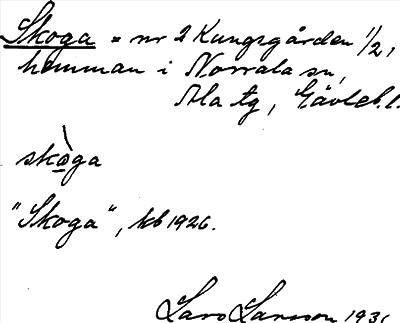 Skoga = nr 2 Kungsgården 1/2,
hemman i Norrala sn,
Ala tg, Gävleb. l.
skòga
"Skoga", kb 1926.
Lars Larsson 193